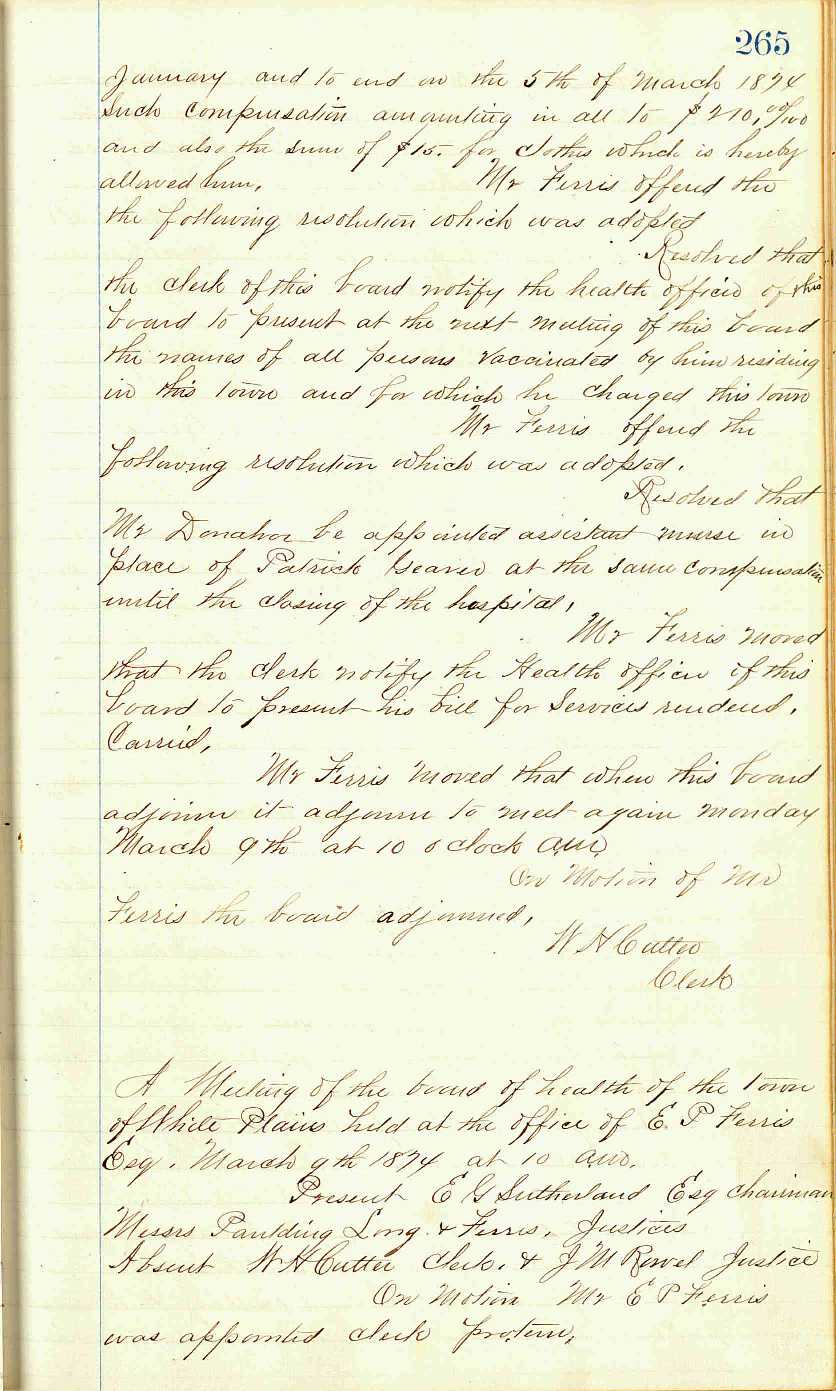 265
January and to end on the 5th of March 1874
Such Compensation amounting in all to $210,00/100
and also the sum of $15. for clothes which is hereby
allowed him, Mr Ferris offered the
the following resolution which was adopted
Resolved that
the clerk of this board notify the health officer of this
board to present at the next meeting of this board
the names of all persons vaccinated by him residing
in this town and for which he charged this town
Mr Ferris offered the
following resolution which was adopted.
Resolved that
Mr Donahoe be appointed assistant nurse in
place of Patrick at the same compensation
until the closing of the hospital,
Mr Ferris moved
that the clerk notify the Health officer of this
board to present his bill for Services rendered.
Carried,
Mr Ferris moved that when this board
adjourn it adjourn to meet again monday
March 9th at 10 o clock a.m.
On Motion of Mr
Ferris the board adjourned,
W H Cutter
Clerk
A Meeting of the board of health of the town
of White Plains held at the office of E. P Ferris
Esq. March 9th 1874 at 10 a.m.
Present E G Sutherland Esq chairman
Messrs Paulding Long & Ferris, Justices
Absent W H Cutter clerk. & J M Justice
On Motion Mr E P Ferris
was appointed clerk protem,